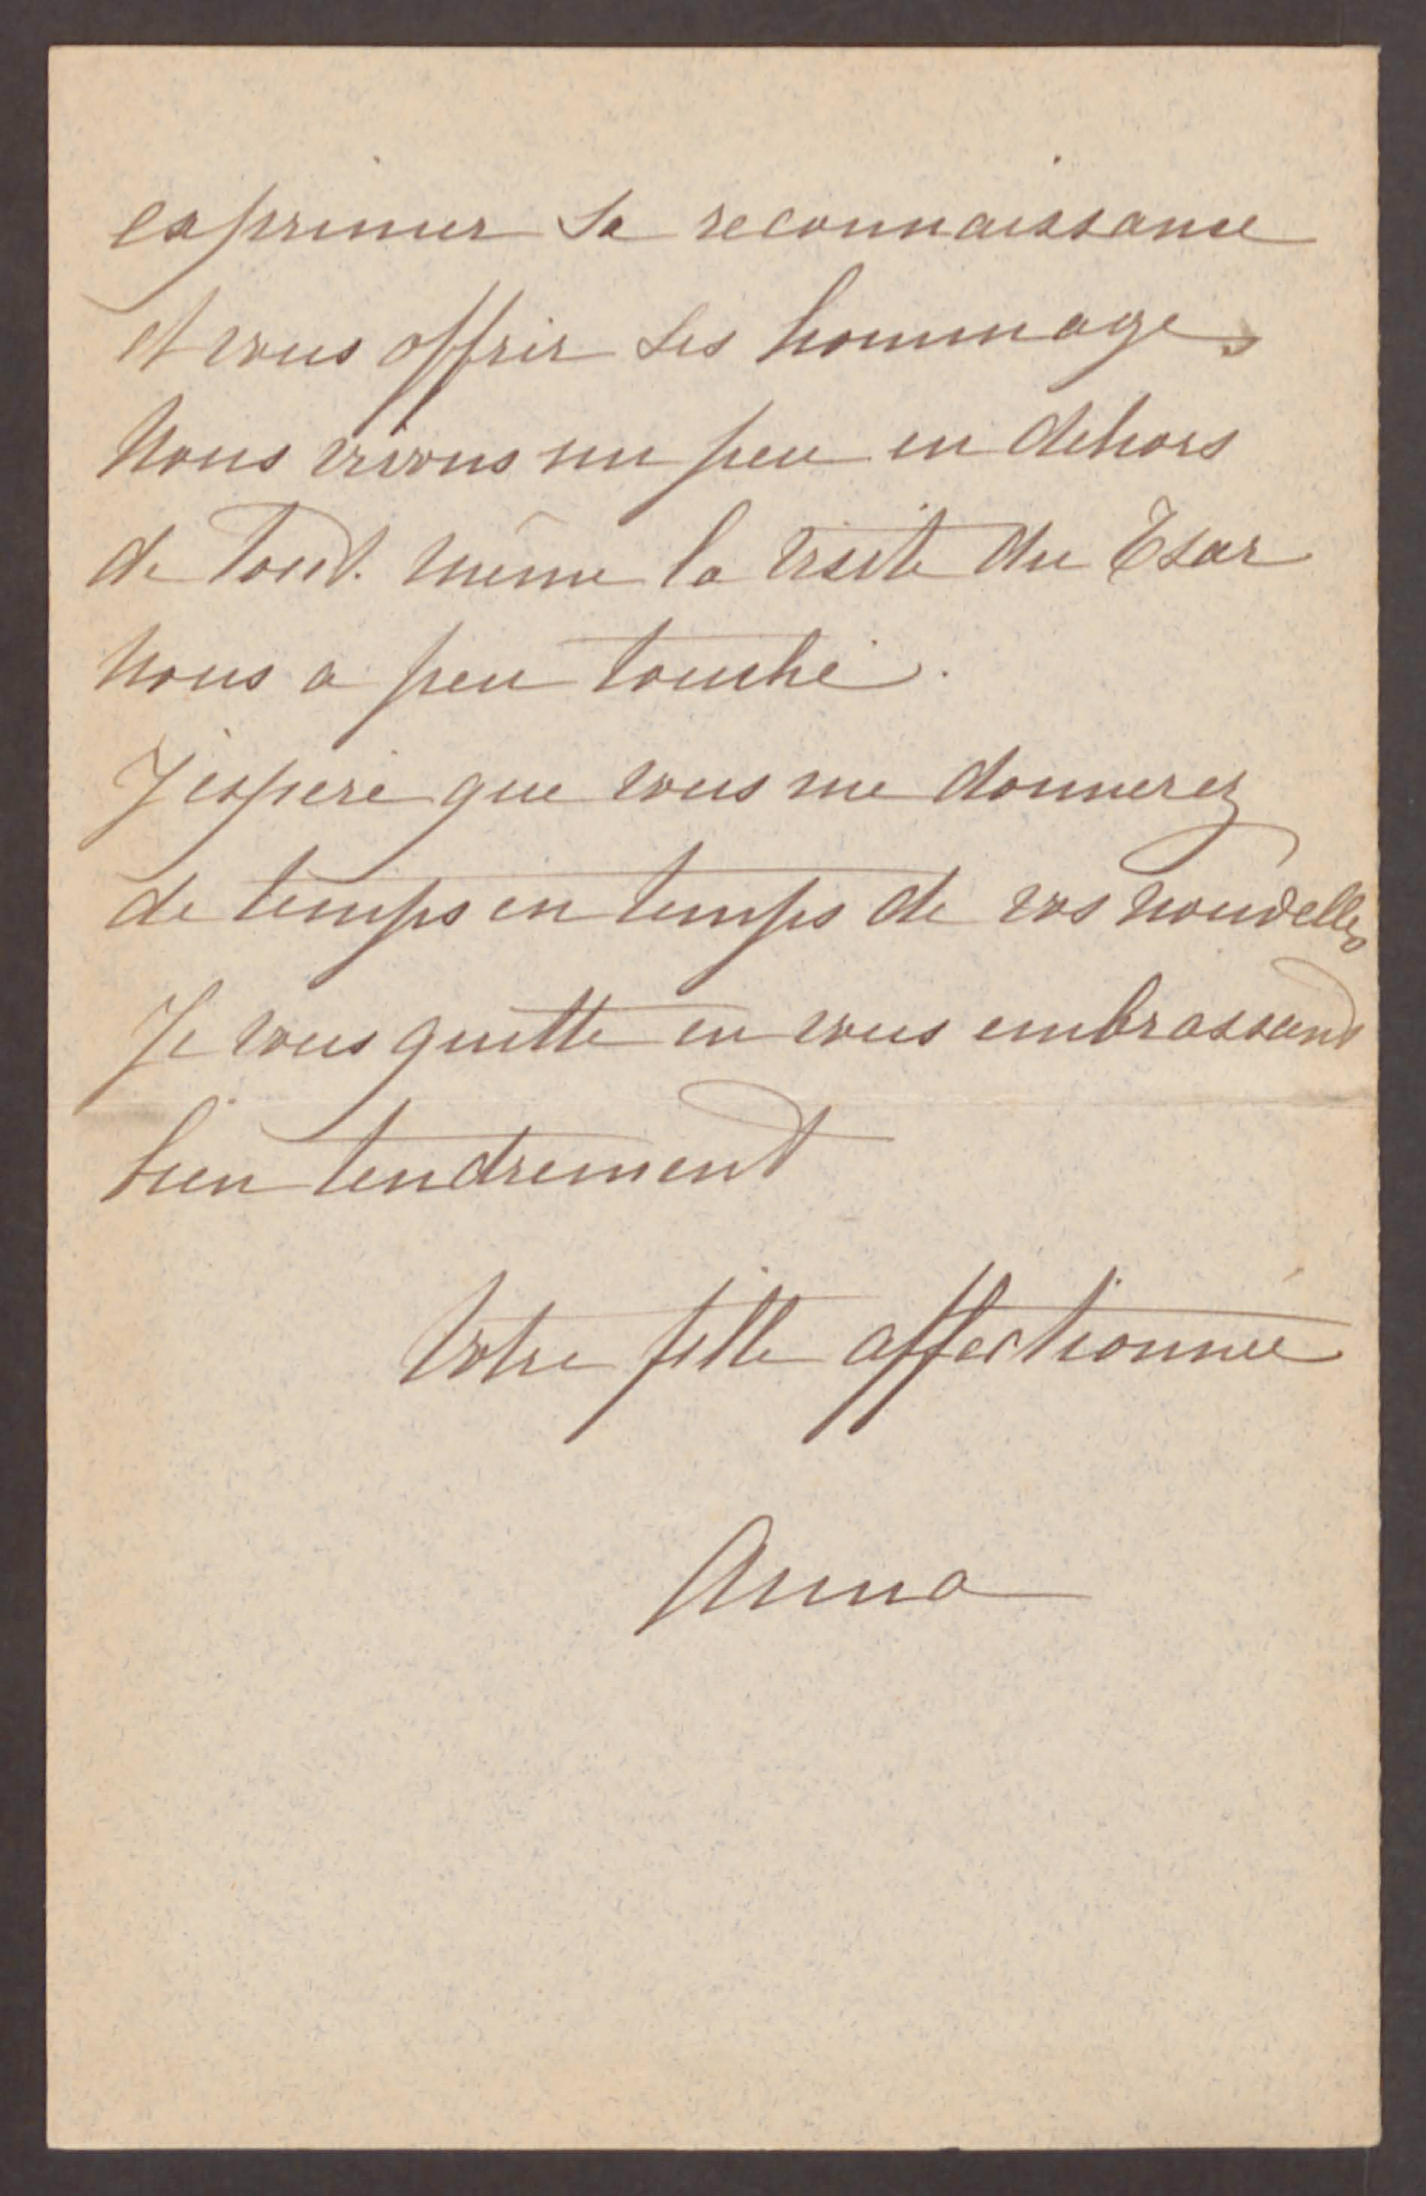 exprimer sa reconnaissance
et vous offrir ses hommages
Nous vivons un peu en dehors
de tout. même la visite du Tsar
nous a peu touché.
J'espère que vous me donnerez
de temps en temps de vos nouvelles
Je vous quitte en vous embrassant
bien tendrement
Votre fille affectionnée
Anna